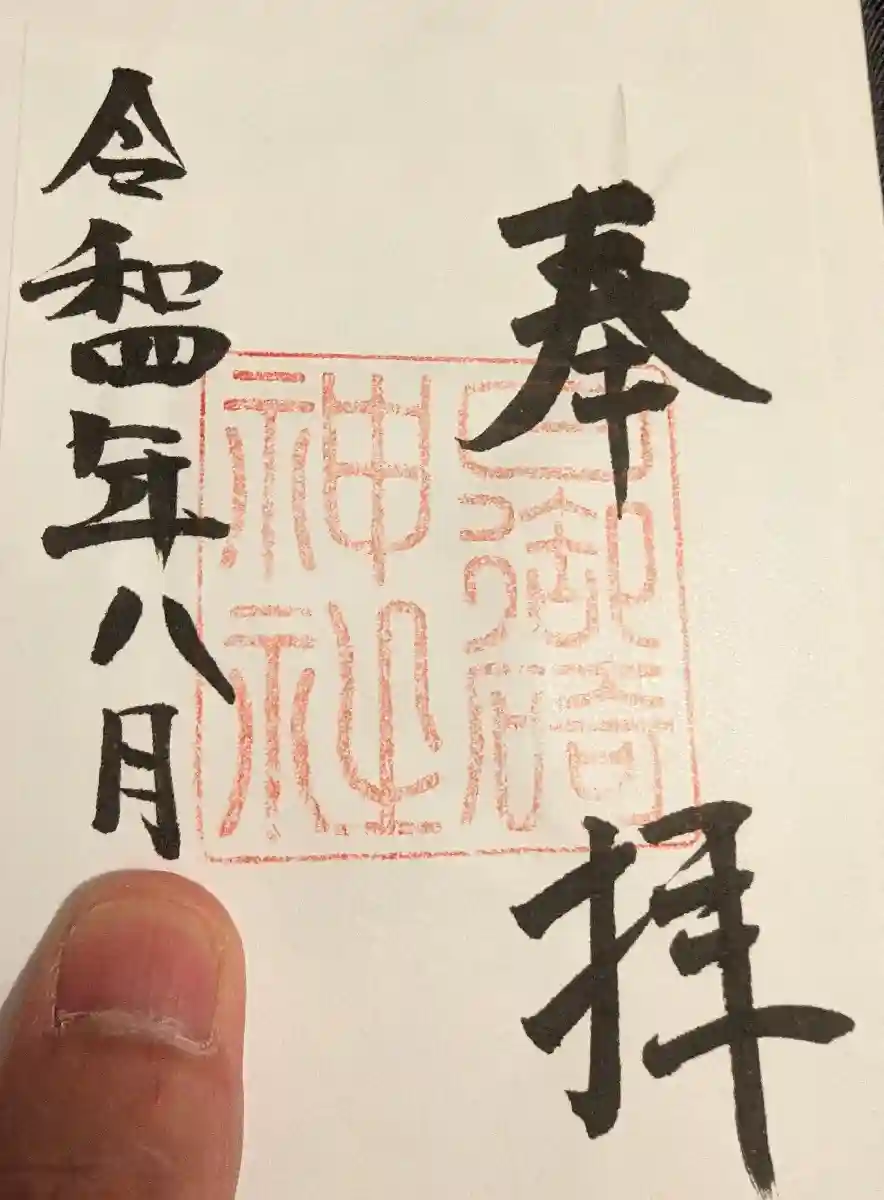 奉拝
日御碕
神社
令和四年八月